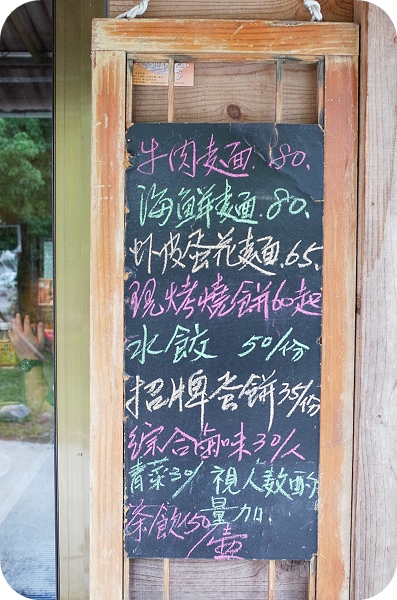 牛肉麵 180.
海鮮麵.80.
虾皮蛋花麵.65.
現烤燒餅60起
水餃 50/份
招牌蛋餅35/份
綜合滷味30/人
青菜30/ 視人数酌
量加.
茶飲150/壺